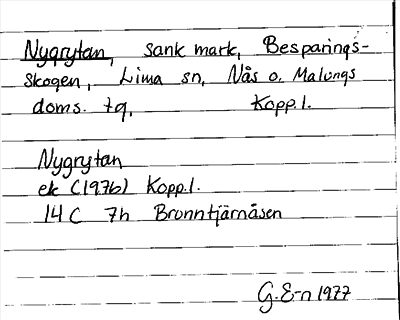 Nygrytan, sank mark, Besparings-
skogen, Lima sn, Nås o. Malungs
doms. tg, Kopp.l.
Nygrytan
ek (1976) Kopp.l.
14 C 7h Bronntjärnåsen
G.E-n 1977